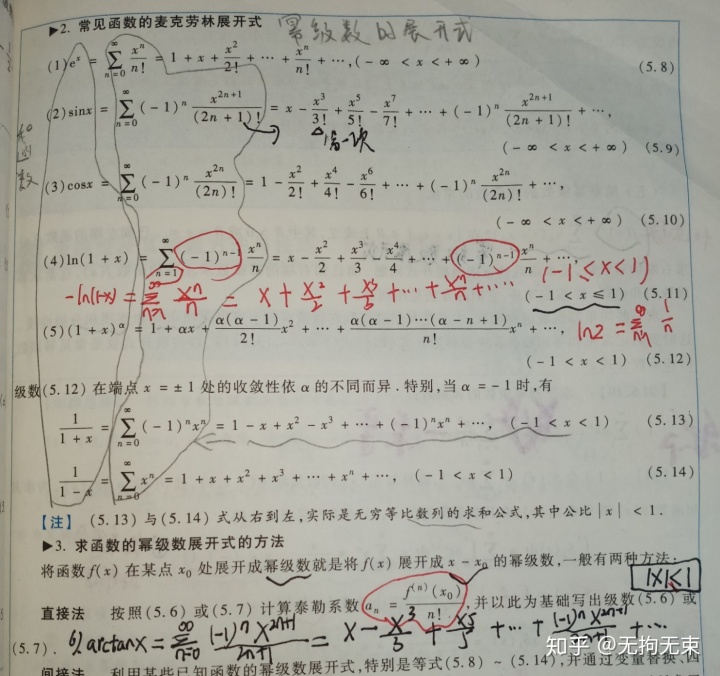 ▶2. 常见函数的麦克劳林展开式 幂级数的展开式
(1)e^x = \sum_{n=0}^{∞} \frac{x^n}{n!} = 1 + x + \frac{x^2}{2!} + ⋯ + \frac{x^n}{n!} + ⋯, (-∞ < x < +∞) (5.8)
(2)sinx = \sum_{n=0}^{∞} (-1)^n \frac{x^{2n+1}}{(2n+1)!} = x - \frac{x^3}{3!} + \frac{x^5}{5!} - \frac{x^7}{7!} + ⋯ + (-1)^n \frac{x^{2n+1}}{(2n+1)!} + ⋯,
(-∞ < x < +∞) (5.9)
(3)cosx = \sum_{n=0}^{∞} (-1)^n \frac{x^{2n}}{(2n)!} = 1 - \frac{x^2}{2!} + \frac{x^4}{4!} - \frac{x^6}{6!} + ⋯ + (-1)^n \frac{x^{2n}}{(2n)!} + ⋯,
(-∞ < x < +∞) (5.10)
(4)ln(1+x) = \sum_{n=1}^{∞} (-1)^{n-1} \frac{x^n}{n} = x - \frac{x^2}{2} + \frac{x^3}{3} - \frac{x^4}{4} + ⋯ + (-1)^{n-1} \frac{x^n}{n} + ⋯,
(-1≤x<1)
-ln(1-x) = \sum_{n=1}^{∞} \frac{x^n}{n} = x + \frac{x^2}{2} + \frac{x^3}{3} + ⋯ + \frac{x^n}{n} + ⋯
(-1 < x ≤ 1) (5.11)
(5)(1+x)^α = 1 + αx + \frac{α(α-1)}{2!}x^2 + ⋯ + \frac{α(α-1)⋯(α-n+1)}{n!}x^n + ⋯, ln2 = \sum_{n=1}^{∞} \frac{1}{n}
(-1 < x < 1) (5.12)
级数(5.12) 在端点 x = ±1 处的收敛性依 α 的不同而异. 特别, 当 α = -1 时, 有
\frac{1}{1+x} = \sum_{n=0}^{∞} (-1)^n x^n = 1 - x + x^2 - x^3 + ⋯ + (-1)^n x^n + ⋯, (-1 < x < 1) (5.13)
\frac{1}{1-x} = \sum_{n=0}^{∞} x^n = 1 + x + x^2 + x^3 + ⋯ + x^n + ⋯, (-1 < x < 1) (5.14)
【注】 (5.13) 与(5.14) 式从右到左, 实际是无穷等比数列的求和公式, 其中公比 |x| < 1.
▶3. 求函数的幂级数展开式的方法
将函数 f(x) 在某点 x_0 处展开成幂级数就是将 f(x) 展开成 x - x_0 的幂级数, 一般有两种方法:
|x|≤1
直接法 按照(5.6) 或(5.7) 计算泰勒系数 a_n = \frac{f^{(n)}(x_0)}{n!}, 并以此为基础写出级数(5.6) 或
(5.7). 6) arctanx = \sum_{n=0}^{∞} \frac{(-1)^n x^{2n+1}}{2n+1} = x - \frac{x^3}{3} + \frac{x^5}{5} + ⋯ + \frac{(-1)^n x^{2n+1}}{2n+1} + ⋯
间接法 利用某些已知函数的幂级数展开式, 特别是等式(5.8) ~ (5.14), 并通过变量替换、四
知乎 @无拘无束